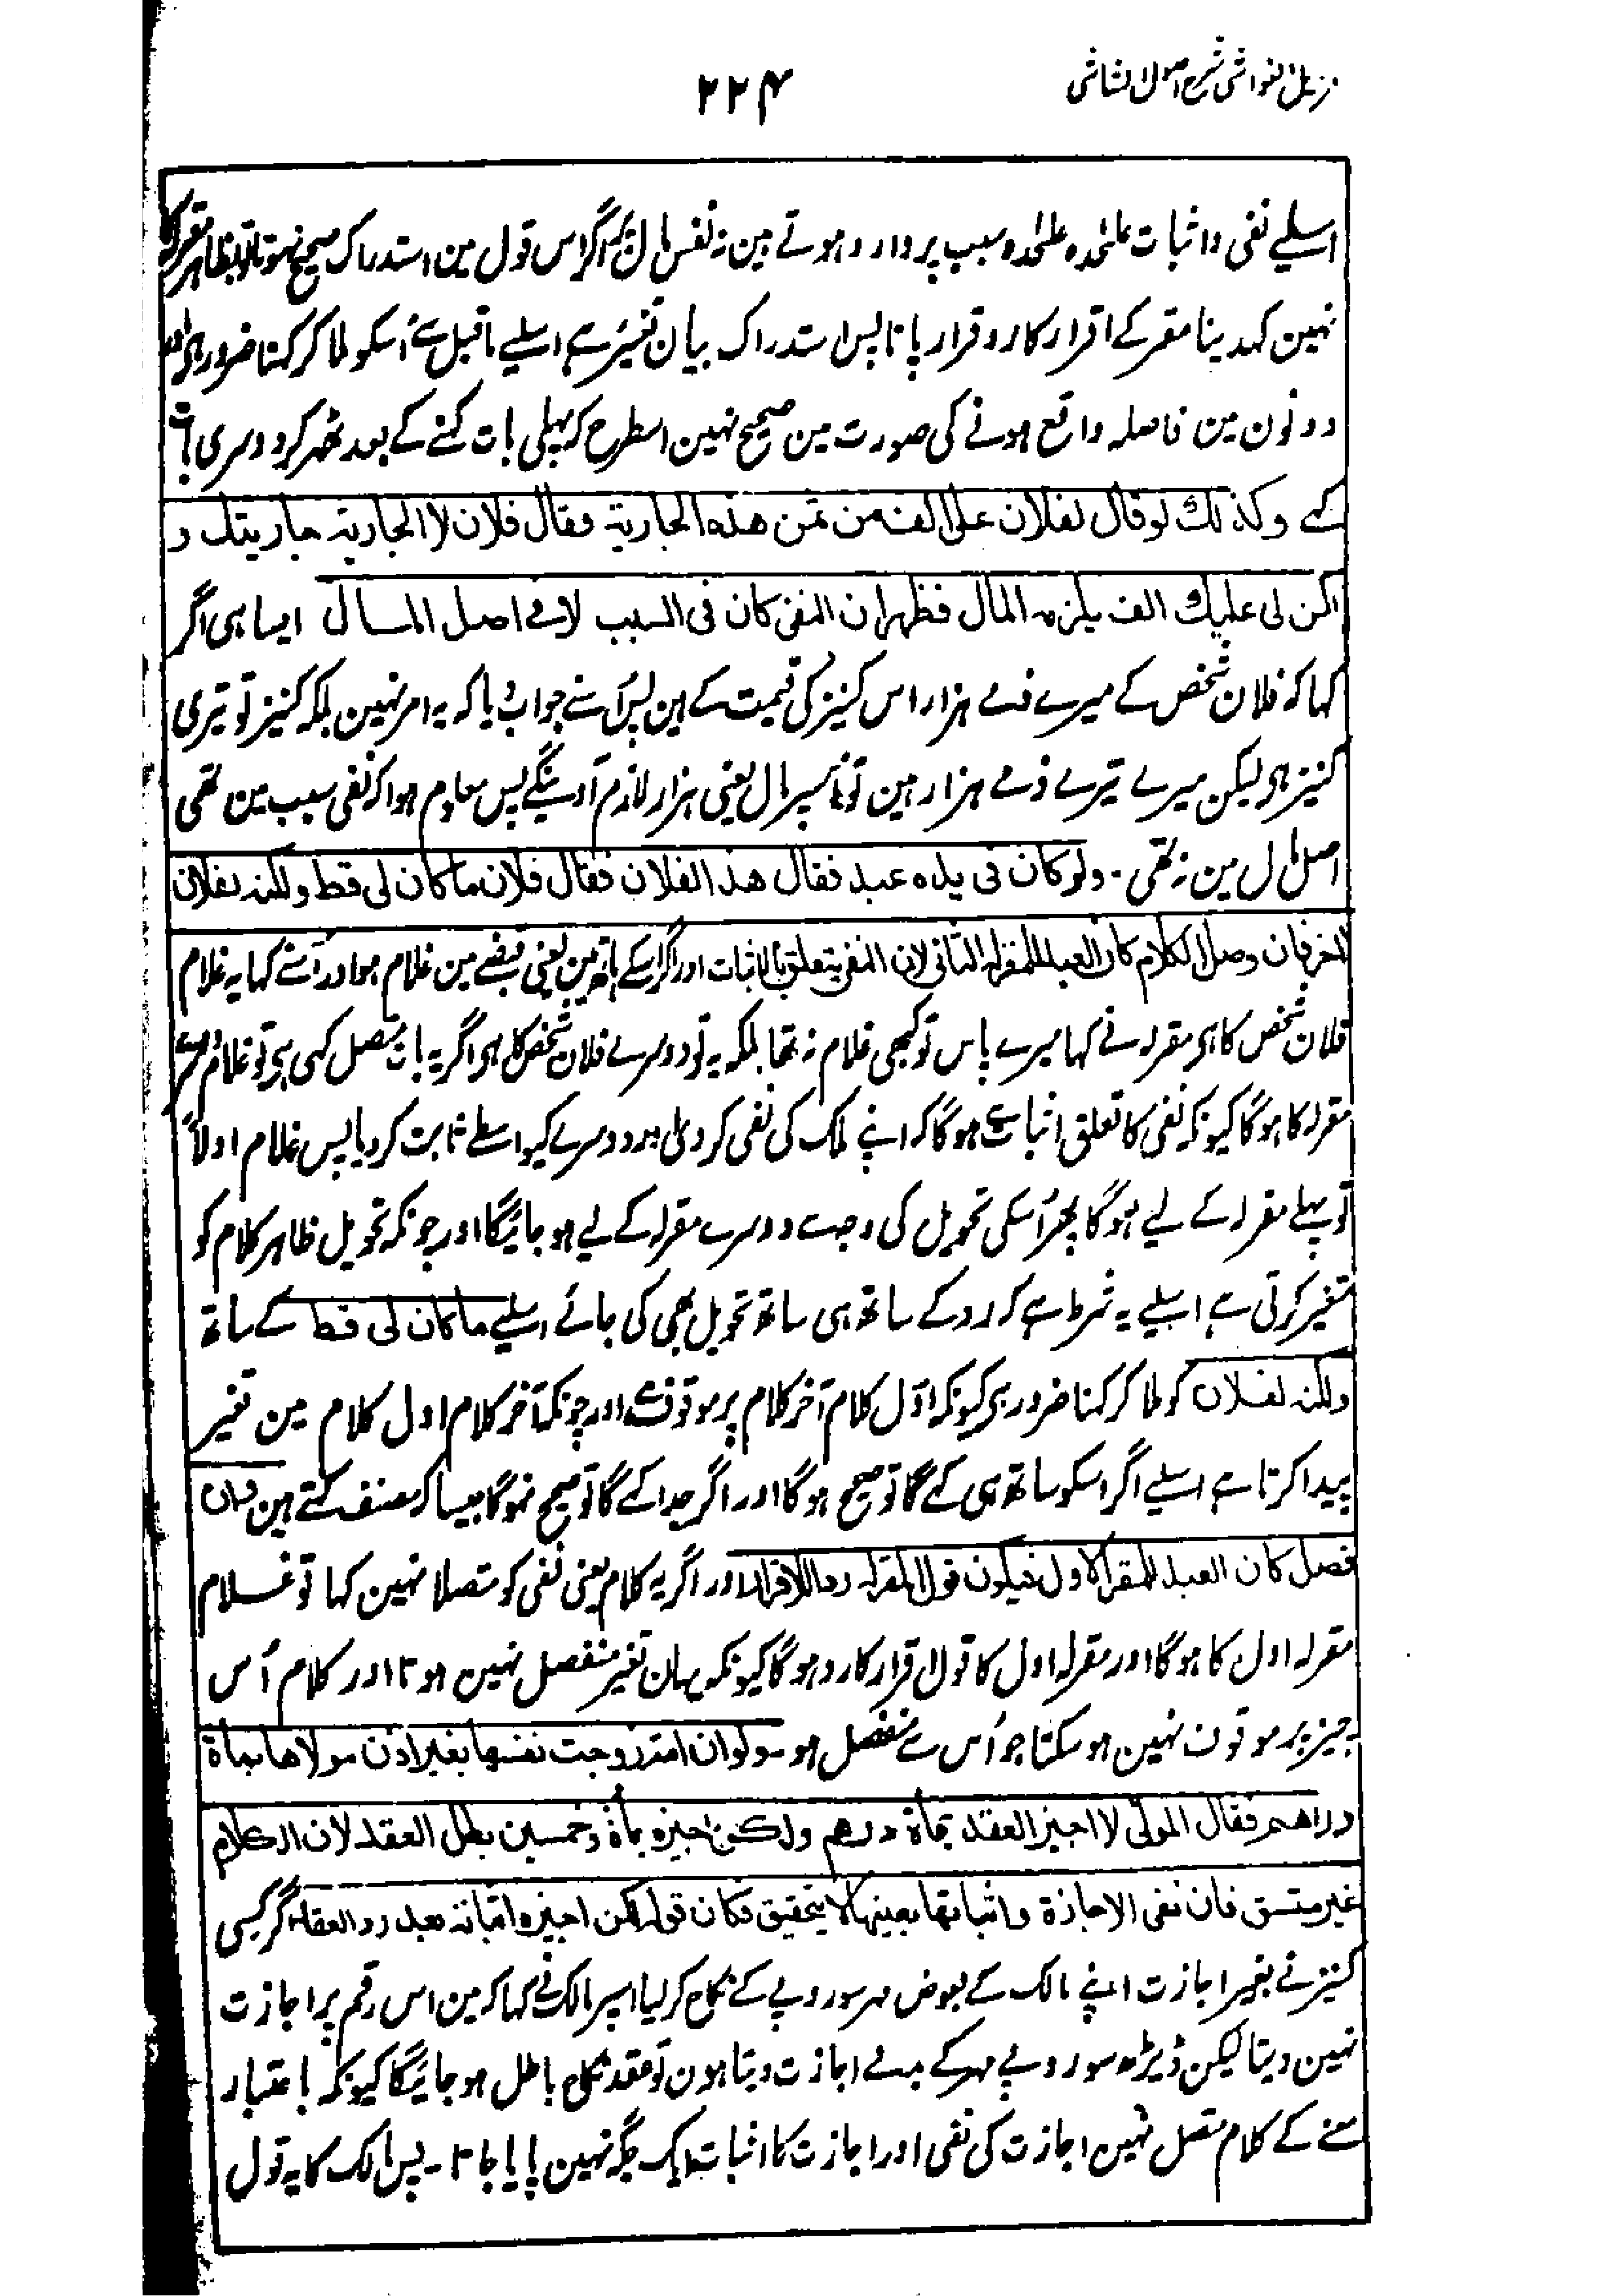 مزیل الغواشی شرح اصول الشاشی
۲۲۴
اسلیے نفی واثبات علٰحدہ علٰحدہ سبب پر وارد ہوتے ہین نہ نفس مال پر اگر اس قول مین استدراک صحیح نہوتا تو بظاہر مقرلہ کا
نہین کہدینا مقر کے اقرار کا رد قرار پاتا پس استدراک بیان تغییر ہے اسلیے ماقبل سے اُسکو ملا کر کہنا ضرور ہی اور
دونون مین فاصلہ واقع ہونے کی صورت مین صحیح نہین اسطرح کہ پہلی بات کہنے کے بعد ٹھر کر دوسری بات
کہے وکذلك لوقال لفلان علی الف من ثمن هذه الجارية فقال فلان لا الجارية جاريتك و
لكن لی عليك الف يلزمه المال فظهران النفی كان فی السبب لافی اصل المال ایسا ہی اگر
کہا کہ فلان شخص کے میرے ذمے ہزار اس کنیز کی قیمت کے ہین پس اُسنے جواب دیا کہ یہ امر نہین بلکہ کنیز تو تیری
کنیز ہی لیکن میرے تیرے ذمے ہزار ہین تو اسپر مال یعنی ہزار لازم آوینگے پس معلوم ہوا کہ نفی سبب مین تھی
اصل مال مین نہ تھی ۔ ولوكان فی يده عبد فقال هذا لفلان فقال فلان ماكان لی قط ولكنه لفلان
اٰخر فان وصل الكلام كان العبد للمقرله الثانی لان النفی يتعلق بالاثبات اور اگر اسکے ہاتھ مین یعنی قبضے مین غلام ہوا در اُسنے کہا یہ غلام
فلان شخص کا ہی مقرلہ نے کہا میرے پاس تو کبھی غلام نہ تھا بلکہ یہ تو دوسرے فلان شخص کا ہی اگر یہ بات متصل کہی ہی تو غلام دوسرے
مقرلہ کا ہوگا کیونکہ نفی کا تعلق اثبات سے ہوگا کہ اپنے ملک کی نفی کر دی اور دوسرے کیواسطے ثابت کر دیا پس غلام اولاً
تو پہلے مقرلہ کے لیے ہوگا پھر اُسکی تحویل کی وجہ سے دوسرے مقرلہ کے لیے ہو جائیگا اور چونکہ تحویل ظاہر کلام کو
متغیر کرتی ہے اسلیے یہ شرط ہے کہ رد کے ساتھ ہی ساتھ تحویل بھی کی جائے اسلیے ماكان لی قط کے ساتھ
ولكنه لفلان کو ملا کر کہنا ضرور ہی کیونکہ اوّل کلام آخر کلام پر موقوف ہے اور چونکہ آخر کلام اول کلام مین تغیر
پیدا کرتا ہے اسلیے اگر اسکو ساتھ ہی کہے گا تو صحیح ہوگا اور اگر جدا کہے گا تو صحیح نہوگا جیسا کہ مصنف کہتے ہین فان
فصل كان العبد للمقرله الاول فيكون قول المقرله ردا للاقرار اور اگر یہ کلام یعنی نفی کو متصلا نہین کہا تو غلام
مقرلہ اول کا ہوگا اور مقرلہ اول کا قول اقرار کا رد ہوگا کیونکہ یہان تغیر منفصل نہین ہوتا اور کلام اُس
چیز پر موقوف نہین ہو سکتا جو اُس سے منفصل ہو ۔ ولوان امة زوجت نفسها بغير اذن مولاها بمأة
دراهم فقال المولى لا اجيز العقد بمأة درهم ولكن اجيزه بمأة وخمسين بطل العقد لان الكلام
غير متسق فان نفی الاجازة واثباتها بعينها لا يتحقق فكان قوله لكن اجيزه اثباته بعد رد العقد اگر کسی
کنیز نے بغیر اجازت اپنے مالک کے بعوض مہر سو روپے کے نکاح کر لیا اسپر مالک نے کہا کہ مین اس رقم پر اجازت
نہین دیتا لیکن ڈیڑھ سو روپے مہر کے بدلے اجازت دیتا ہون تو عقد نکاح باطل ہو جائیگا کیونکہ باعتبار
معنے کے کلام متصل نہین اجازت کی نفی اور اجازت کا اثبات ایک جگہ نہین پایا جاتا ۔ پس مالک کا یہ قول